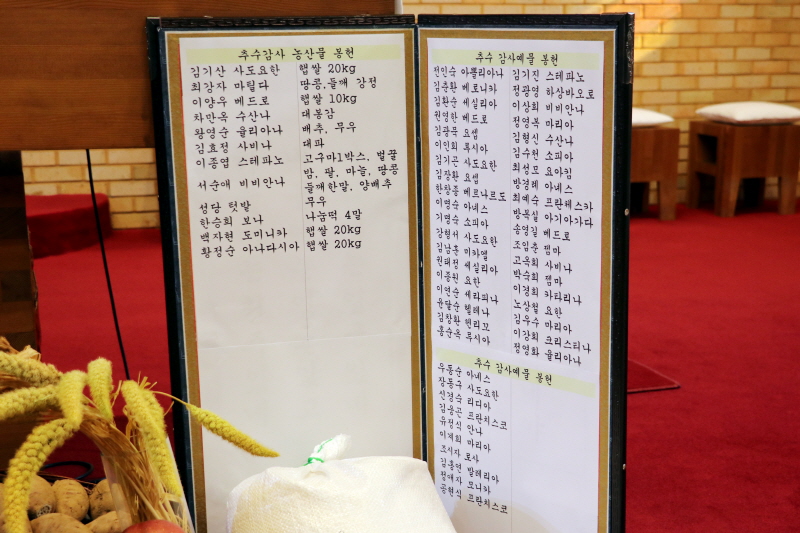 추수감사 농산물 봉헌
김기산 사도요한 햅쌀 20kg
최강자 마틸다 땅콩,들깨 강정
이양우 베드로 햅쌀 10kg
차만옥 수산나 대봉감
왕영순 율리아나 배추, 무우
김효정 사비나 대파
이종엽 스테파노 고구마1박스, 벌꿀
밤, 팥, 마늘, 땅콩
서순애 비비안나 들깨한말, 양배추
성당 텃밭 무우
한승희 보나 나눔떡 4말
백자현 도미니카 햅쌀 20kg
황정순 아나다시아 햅쌀 20kg
추수 감사예물 봉헌
전인숙 아뽈리아나
김춘환 베로니카
김환순 세실리아
원영한 베드로
김광묵 요셉
이인희 루시아
김기곤 사도요한
김장환 요셉
한창종 베르나르도
이명순 아녜스
기명숙 소피아
강형서 사도요한
김남훈 미카엘
권태정 세실리아
이종원 요한
이연순 세라피나
윤달순 헬레나
김창환 헨리꼬
홍순옥 루시아
김기진 스테파노
정광영 하상바오로
이상희 비비안나
정영복 마리아
김형신 수산나
김수천 소피아
최성모 요아킴
방경혜 아녜스
최예숙 프란체스카
방옥실 아기아가다
송영길 베드로
조임춘 젬마
고옥희 사비나
박숙희 젬마
이경희 카타리나
노상철 요한
김우수 마리아
이강희 크리스티나
정영화 율리아나
추수 감사예물 봉헌
우동순 아녜스
장동구 사도요한
신경숙 리디아
김용곤 프란치스코
유정식 안나
이계희 마리아
조시자 로사
김홍연 발레리아
정애자 모니카
공현식 프란치스코